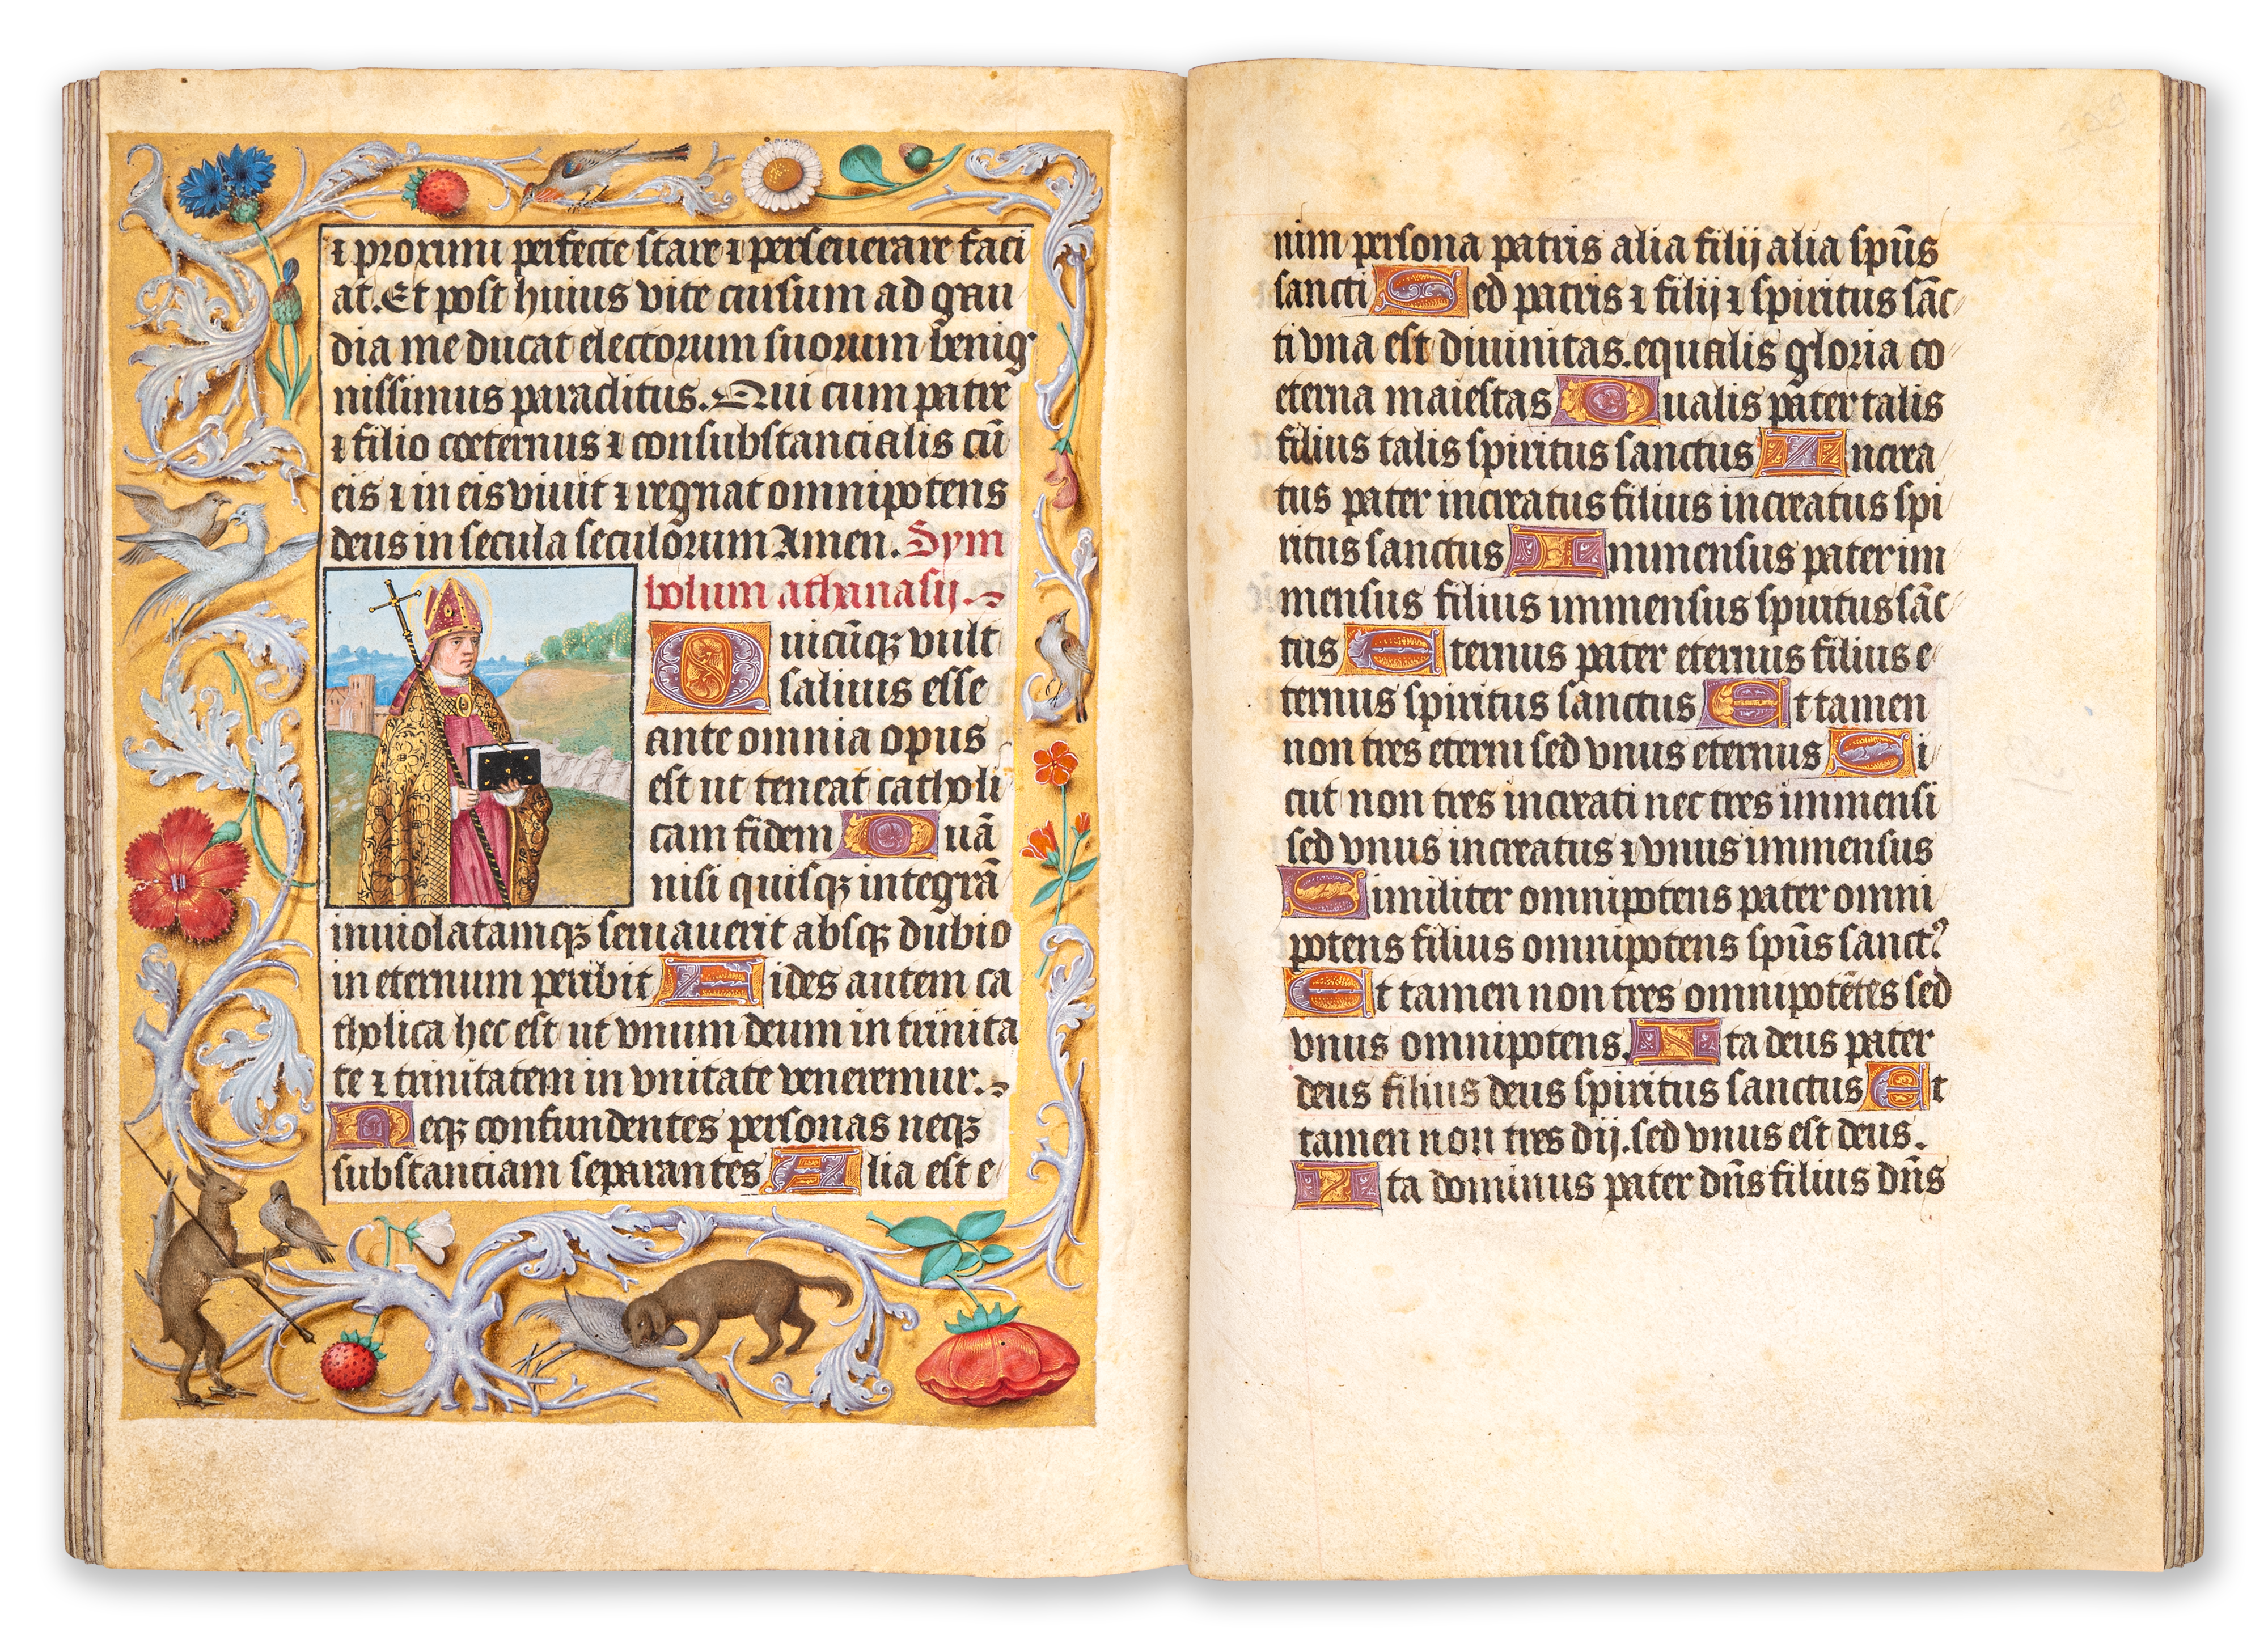 ⁊ proximi perfecte stare ⁊ perseuerare faci
at. Et post huius vite cursum ad gau
dia me ducat electorum suorum benig
nissimus paraclitus. Qui cum patre
⁊ filio coeternus ⁊ consubstancialis cū
eis ⁊ in eis viuit ⁊ regnat omnipotens
deus in secula seculorum Amen. Sym
bolum athanasij.
Quicūqꝫ vult
saluus esse
ante omnia opus
est ut teneat catholi
cam fidem Quā
nisi quisqꝫ integrā
inuiolatamqꝫ seruauerit absqꝫ dubio
in eternum peribit Fides autem ca
tholica hec est ut vnum deum in trinita
te ⁊ trinitatem in vnitate veneremur.
Neqꝫ confundentes personas neqꝫ
substanciam separantes Alia est e
nim persona patris alia filij alia spūs
sancti Sed patris ⁊ filij ⁊ spiritus sāc
ti vna est diuinitas. equalis gloria co
eterna maiestas Qualis pater talis
filius talis spiritus sanctus Increa
tus pater increatus filius increatus spi
ritus sanctus Immensus pater im
mensus filius immensus spiritus sāc
tus Eternus pater eternus filius e
ternus spiritus sanctus Et tamen
non tres eterni sed vnus eternus Si
cut non tres increati nec tres immensi
sed vnus increatus ⁊ vnus immensus
Similiter omnipotens pater omni
potens filius omnipotens spūs sanctꝰ
Et tamen non tres omnipotētes sed
vnus omnipotens. Ita deus pater
deus filius deus spiritus sanctus Et
tamen non tres dij. sed vnus est deus.
Ita dominus pater dn̄s filius dn̄s